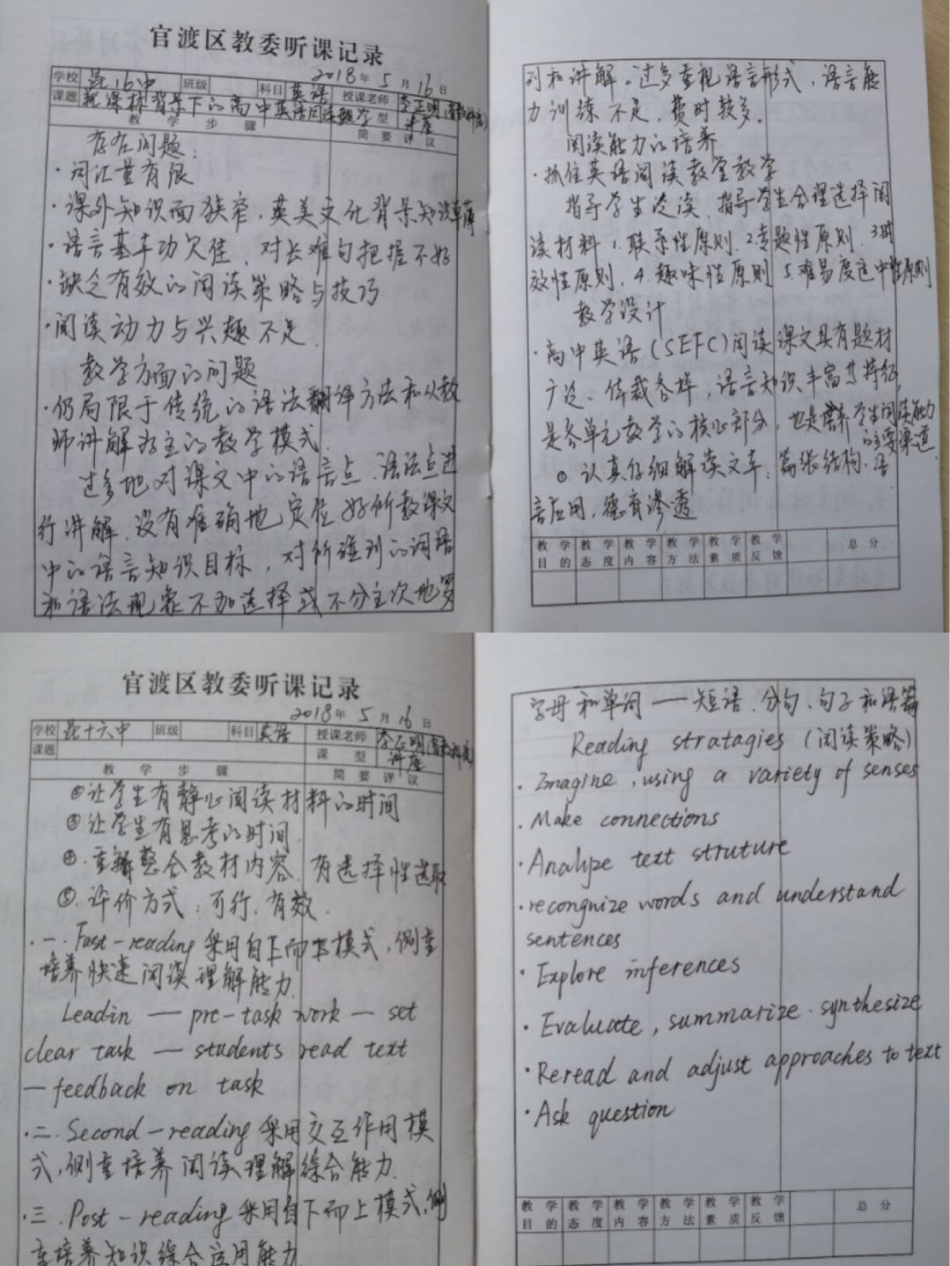 官渡区教委听课记录
2018年 5月 16日
学校 昆16中 班级 科目 英语 授课老师 李正明
课题 新课标背景下的高中英语阅读教学 课型 讲座
教学步骤 简要评议
存在问题:
·词汇量有限
·课外知识面狭窄,英美文化背景知识单薄
·语言基本功欠佳,对长难句把握不好
·缺乏有效的阅读策略与技巧
·阅读动力与兴趣不足.
教学方面的问题
·仍局限于传统的语法翻译方法和以教
师讲解为主的教学模式.
过多地对课文中的语言点、语法点进
行讲解,没有准确地定位好所教课文
中的语言知识目标,对所碰到的词语
和语法现象不加选择或不分主次地罗
列和讲解。过多重视语言形式,语言能
力训练不足,费时较多.
阅读能力的培养
·抓住英语阅读教堂教学
指导学生泛读,指导学生合理选择阅
读材料 1.联系性原则.2.专题性原则.3时
效性原则.4.趣味性原则 5.难易度适中性原则
教学设计
·高中英语(SEFC)阅读课文具有题材
广泛、体裁各样,语言知识丰富等特征,
是各单元教学的核心部分,也是培养学生阅读能力
的主要渠道.
①认真仔细解读文本:篇张结构.语
言应用,德育渗透
教学目的 教学态度 教学内容 教学方法 教学素质 教学反馈 总分
官渡区教委听课记录
2018年 5月 16日
学校 昆十六中 班级 科目 英语 授课老师 李正明
课题 课型 讲座
教学步骤 简要评议
②让学生有静心阅读材料的时间
③让学生有思考的时间.
④.重新整合教材内容.有选择性选取
⑤.评价方式:可行.有效.
·一.Fast-reading 采用自下而上模式,侧重
培养快速阅读理解能力.
Leadin — pre-task work — set
clear task — students read text
— feedback on task
·二.Second-reading 采用交互作用模
式,侧重培养阅读理解综合能力.
·三.Post-reading 采用自下而上模式,侧
重培养知识综合运用能力
字母和单词——短语.分句.句子和语篇
Reading stratagies (阅读策略)
·Imagine, using a variety of senses
·Make connections
·Analyze text struture
·recongnize words and understand
sentences
·Explore inferences
·Evaluate, summarize. synthesize
·Reread and adjust approaches to text
·Ask question
教学目的 教学态度 教学内容 教学方法 教学素质 教学反馈 总分